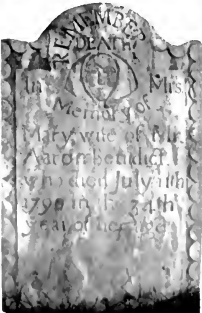 REMEMBER
DEATH
In Mrs
Memory of
Mary wife of Mr
Aaron benedict
who died July
1790 in 34th
year of her age